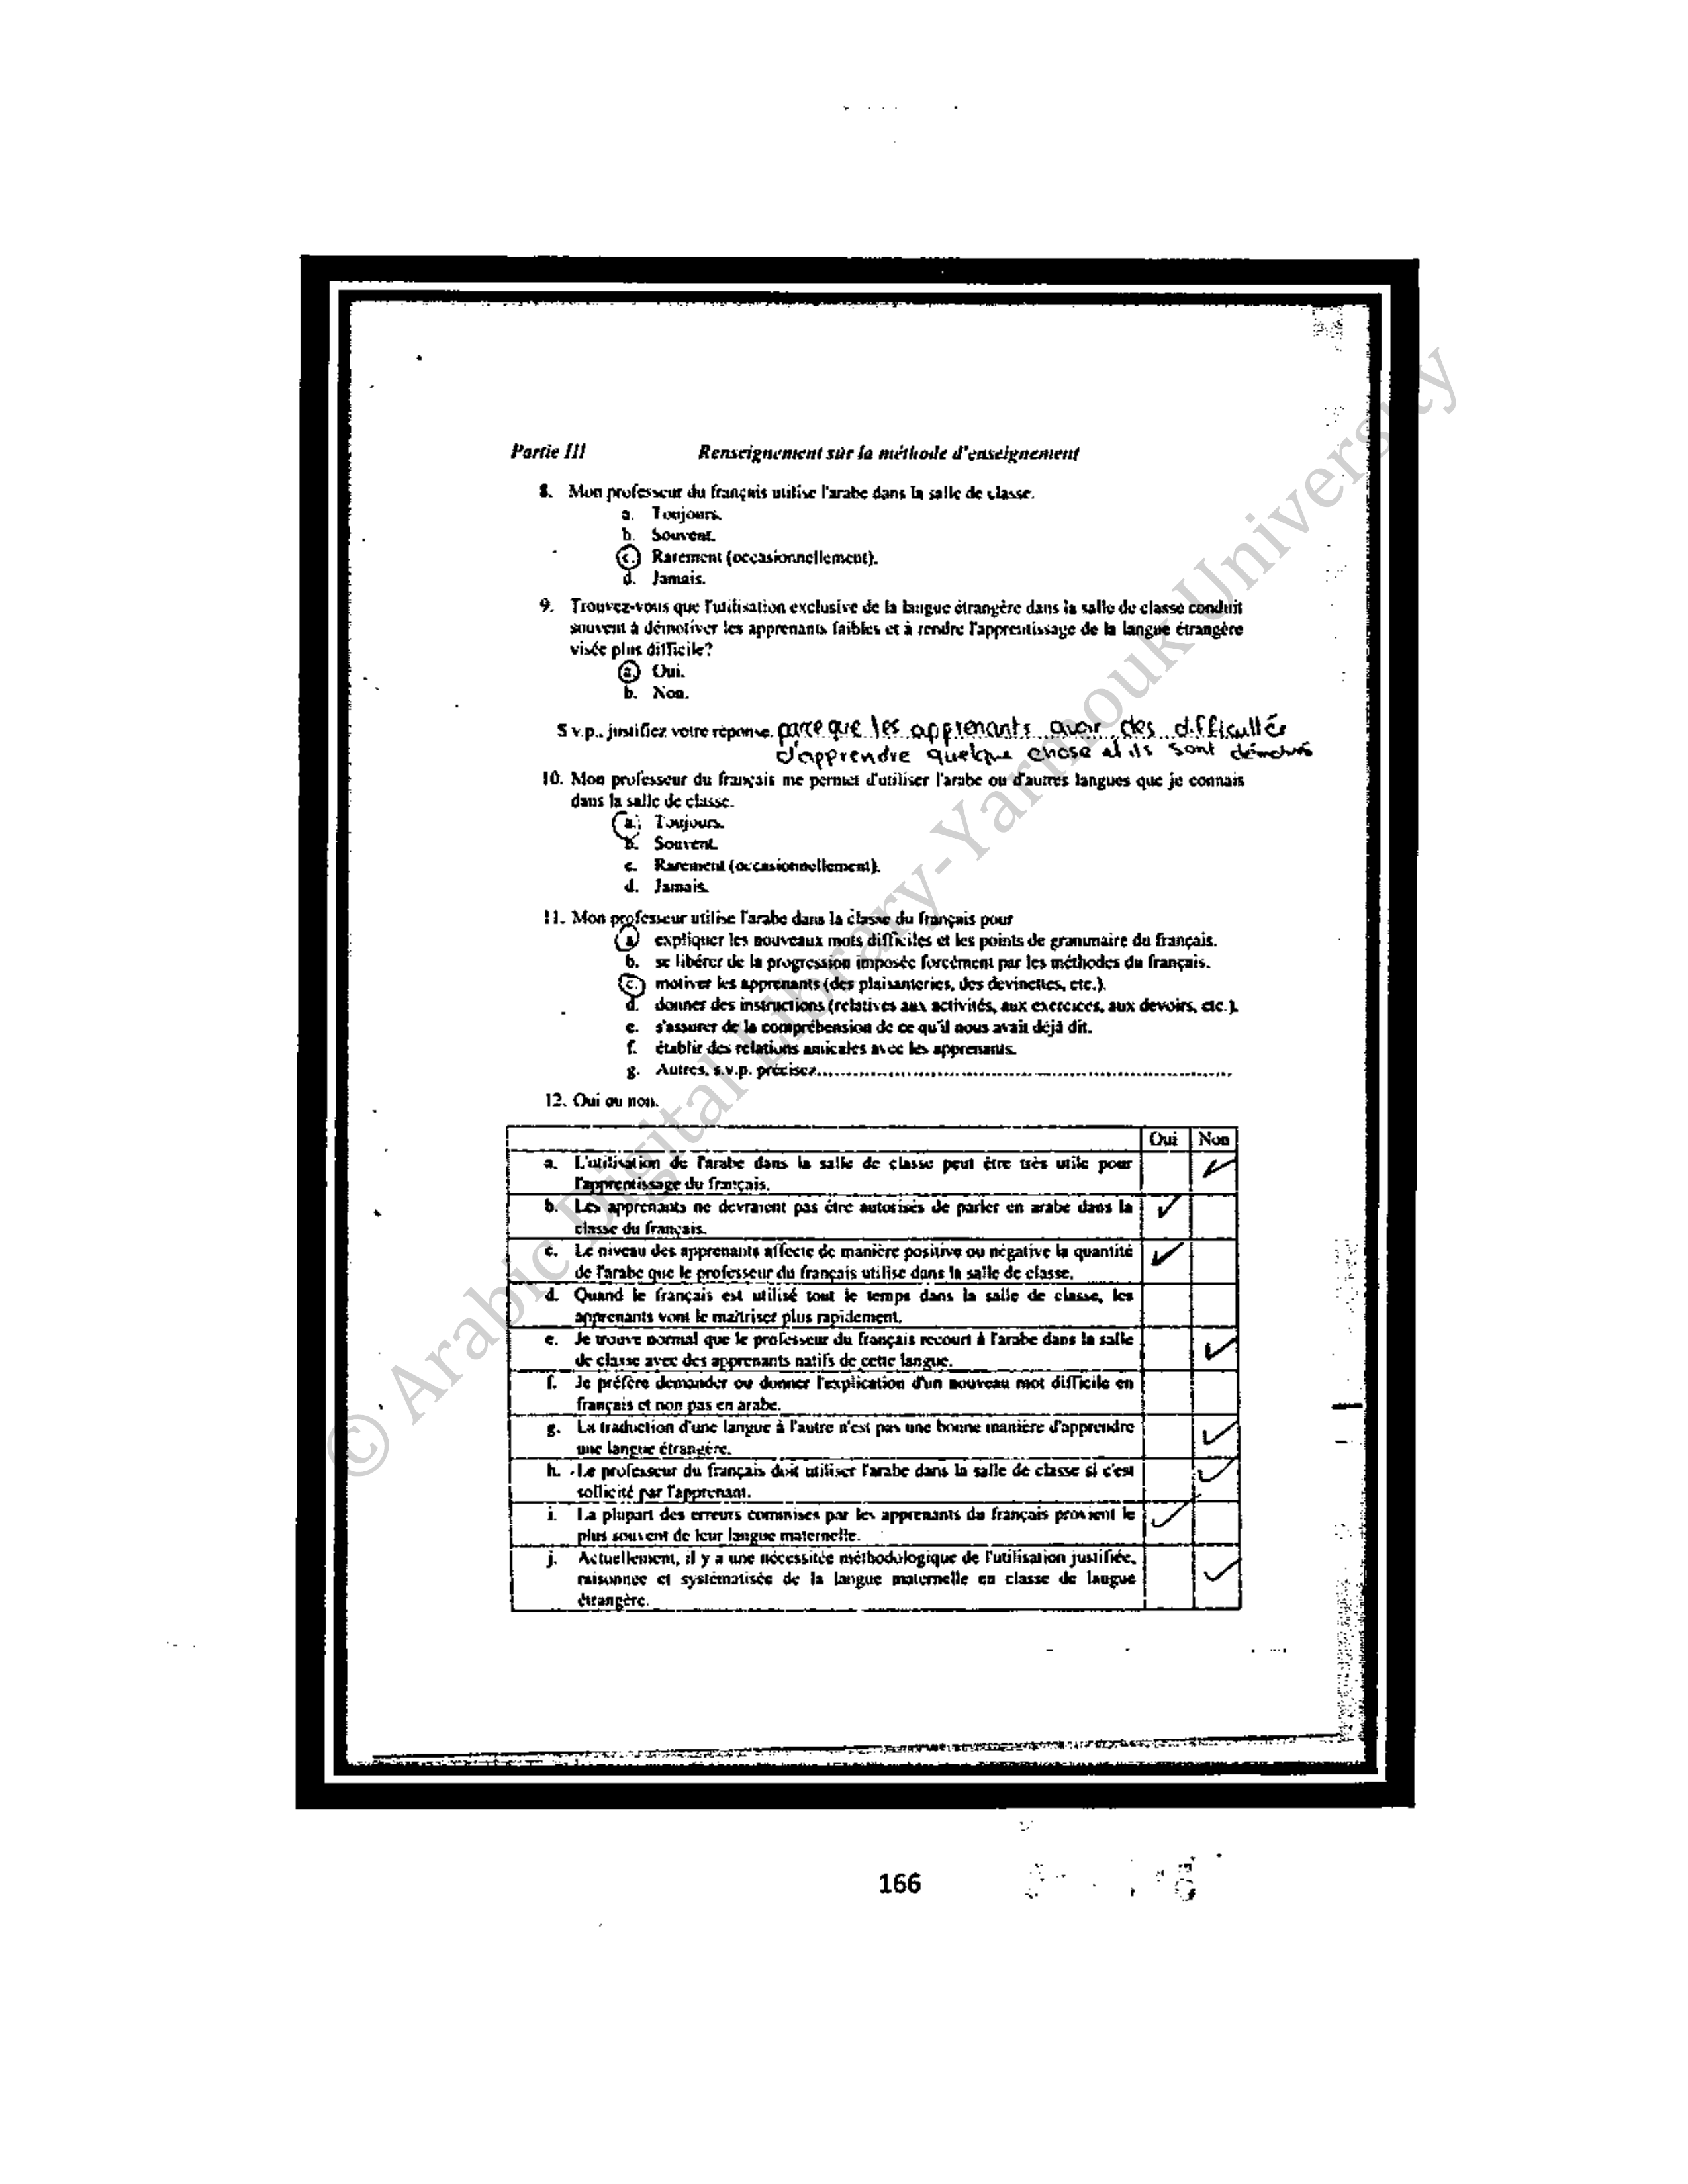 Partie III Renseignement sûr la méthode d'enseignement
8. Mon professeur du français utilise l'arabe dans la salle de classe.
a. Toujours.
b. Souvent.
c. Rarement (occasionnellement).
d. Jamais.
9. Trouvez-vous que l'utilisation exclusive de la langue étrangère dans la salle de classe conduit
souvent à démotiver les apprenants faibles et à rendre l'apprentissage de la langue étrangère
visée plus difficile?
a. Oui.
b. Non.
S v.p., justifiez votre réponse. parce que les apprenants avoir des difficultés
d'apprendre quelque chose ils sont
10. Mon professeur du français me permet d'utiliser l'arabe ou d'autres langues que je connais
dans la salle de classe.
a. Toujours.
b. Souvent.
c. Rarement (occasionnellement).
d. Jamais.
11. Mon professeur utilise l'arabe dans la classe du français pour
a. expliquer les nouveaux mots difficiles et les points de grammaire du français.
b. se libérer de la progression imposée forcément par les méthodes du français.
c. motiver les apprenants (des plaisanteries, des devinettes, etc.).
d. donner des instructions (relatives aux activités, aux exercices, aux devoirs, etc.).
e. s'assurer de la compréhension de ce qu'il nous avait déjà dit.
f. établir des relations amicales avec les apprenants.
g. Autres, s.v.p. précisez..........
12. Oui ou non.
Oui Non
a. L'utilisation de l'arabe dans la salle de classe peut être très utile pour
l'apprentissage du français.
b. Les apprenants ne devraient pas être autorisés de parler en arabe dans la
classe du français.
c. Le niveau des apprenants affecte de manière positive ou négative la quantité
de l'arabe que le professeur du français utilise dans la salle de classe.
d. Quand le français est utilisé tout le temps dans la salle de classe, les
apprenants vont le maîtriser plus rapidement.
e. Je trouve normal que le professeur du français recourt à l'arabe dans la salle
de classe avec des apprenants natifs de cette langue.
f. Je préfère demander ou donner l'explication d'un nouveau mot difficile en
français et non pas en arabe.
g. La traduction d'une langue à l'autre n'est pas une bonne manière d'apprendre
une langue étrangère.
h. Le professeur du français doit utiliser l'arabe dans la salle de classe si c'est
sollicité par l'apprenant.
i. La plupart des erreurs commises par les apprenants du français provient le
plus souvent de leur langue maternelle.
j. Actuellement, il y a une nécessitée méthodologique de l'utilisation justifiée,
raisonnée et systématisée de la langue maternelle en classe de langue
étrangère.
© Arabic Digital Library-Yarmouk University
166